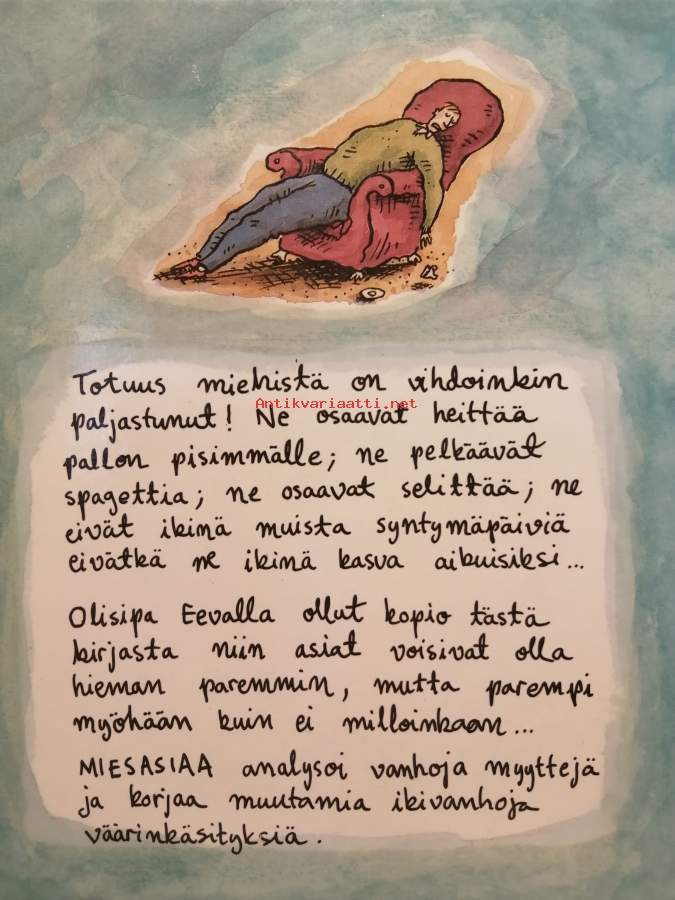 Totuus miehistä on vihdoinkin
Antikvariaatti.net
paljastunut! Ne osaavat heittää
pallon pisimmälle; ne pelkäävät
spagettia; ne osaavat selittää; ne
eivät ikinä muista syntymäpäiviä
eivätkä ne ikinä kasva aikuisiksi...
Olisipa Eevalla ollut kopio tästä
kirjasta niin asiat voisivat olla
hieman paremmin, mutta parempi
myöhään kuin ei milloinkaan...
MIESASIAA analysoi vanhoja myyttejä
ja korjaa muutamia ikivanhoja
väärinkäsityksiä.